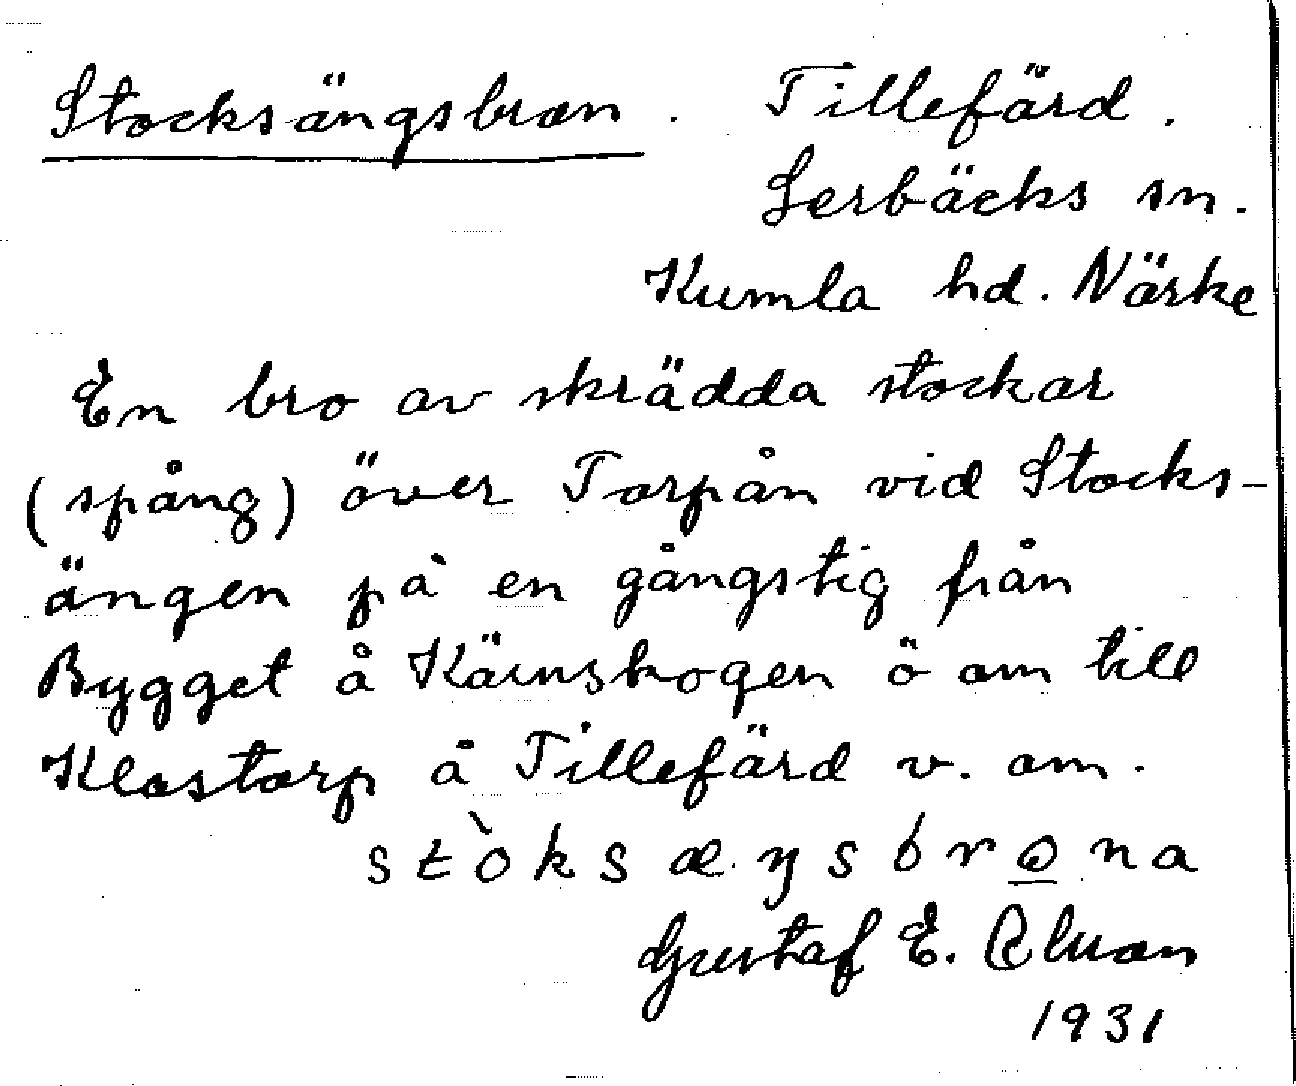 Stocksängsbron. Tillefärd.
Lerbäcks sn.
Kumla hd. Närke
En bro av skrädda stockar
(spång) över Torpån vid Stocks-
ängen på en gångstig från
Bygget å Kärnskogen ö om till
Klastorp å Tillefärd v. om.
stòksæŋsbrona
Gustaf E.
1931